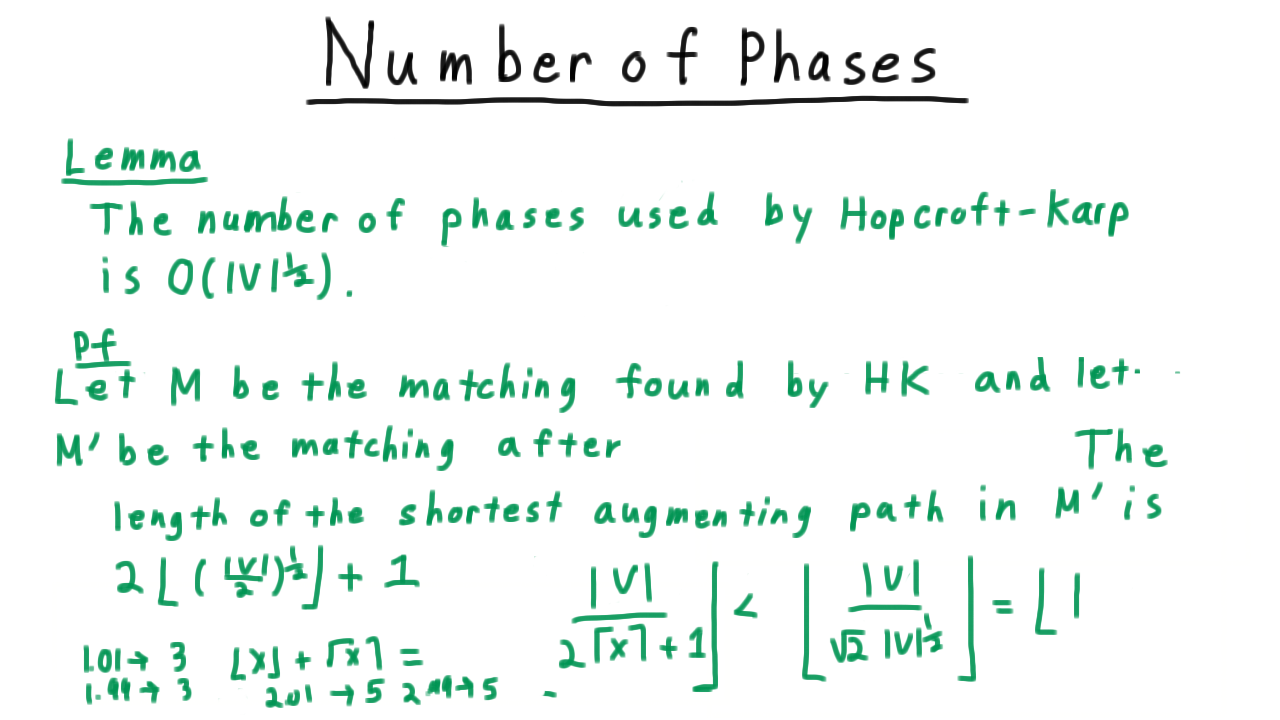 Number of Phases
Lemma
The number of phases used by Hopcroft-Karp
is O(|V|^½).
Pf
Let M be the matching found by HK and let
M' be the matching after The
length of the shortest augmenting path in M' is
2⌊(|V|/2)^½⌋ + 1
|V| / (2⌈x⌉ + 1)⌋ < ⌊|V| / (√2 |V|^½)⌋ = ⌊|
1.01 → 3 ⌊x⌋ + ⌈x⌉ =
1.99 → 3 2.01 → 5 2.99 → 5